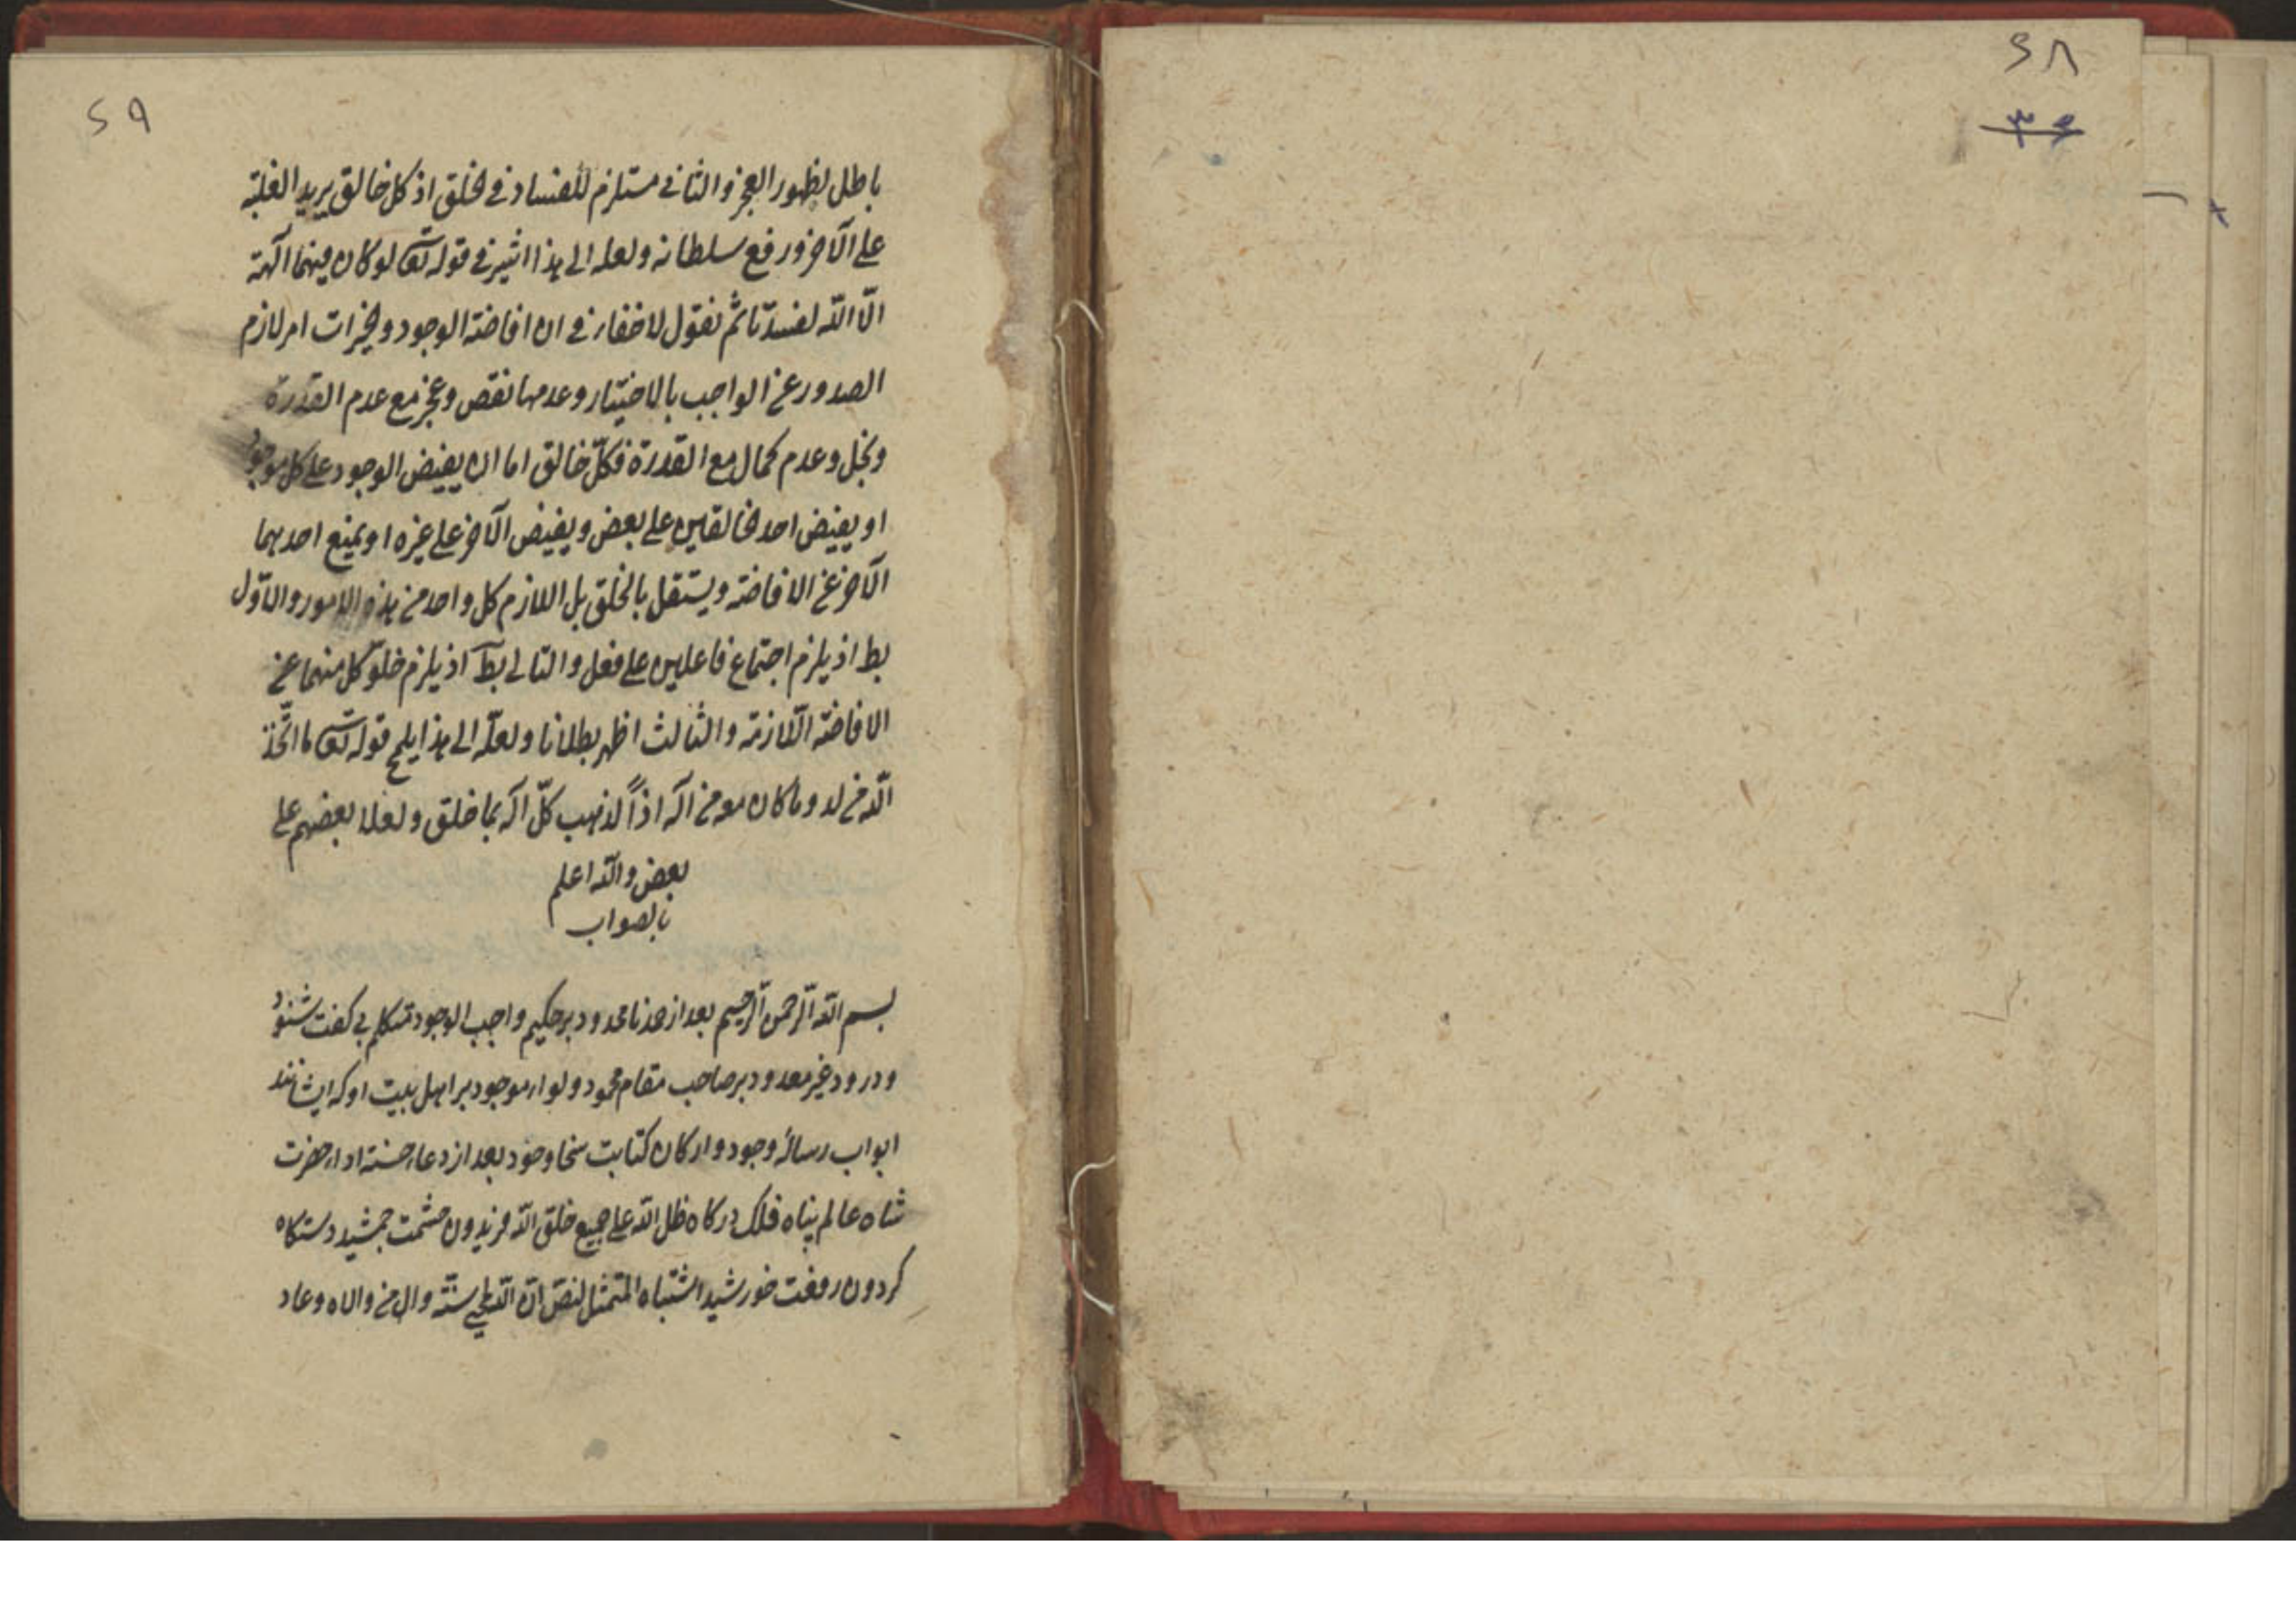 ۲۸
۳۹
۲۹
باطل لظهور العجز والثانی مستلزم للفساد فی الخلق اذ کل خالق یرید الغلبة
علی الآخر ورفع سلطانه ولعله الی هذا اشیر فی قوله تعه لو کان فیهما آلهة
الّا اللّه لفسدتا ثم نقول لا خفاء فی ان افاضة الوجود والخیرات امر لازم
الصدور عن الواجب بالاختیار وعدمها نقص وعجز مع عدم القدرة
وبخل وعدم کمال مع القدرة فکلّ خالق اما ان یفیض الوجود علی کل موجود
او یفیض احد الخالقین علی بعض ویفیض الآخر علی غیره او یمنع احدهما
الآخر عن الافاضة ویستقل بالخلق بل اللازم کل واحد من هذه الامور والاوّل
بط اذ یلزم اجتماع فاعلین علی فعل والثانی بط اذ یلزم خلوّ کل منهما عن
الافاضة اللّازمة والثالث اظهر بطلانا ولعلّه الی هذا یلمح قوله تعه ما اتّخذ
اللّه من ولد وما کان معه من آله اذاً لذهب کلّ اله بما خلق ولعلا بعضهم علی
بعض واللّه اعلم
بالصواب
بسم اللّه الرّحمن الرّحیم بعد از حمد نامحدود بر حکیم واجب الوجود متکلم بی کفت شنود
ودرود غیر معدود بر صاحب مقام محمود ولواء موجود بر اهل بیت او که ایشانند
ابواب رسالهٔ وجود وارکان کتابت سخا وجود بعد از دعا حضرت
شاه عالم پناه فلک درکاه ظل اللّه علی جمیع خلق اللّه فریدون حشمت جمشید دستکاه
کردون رفعت خورشید اشتباه المتمثل لنصّ انّ اللّه وال من والاه وعاد